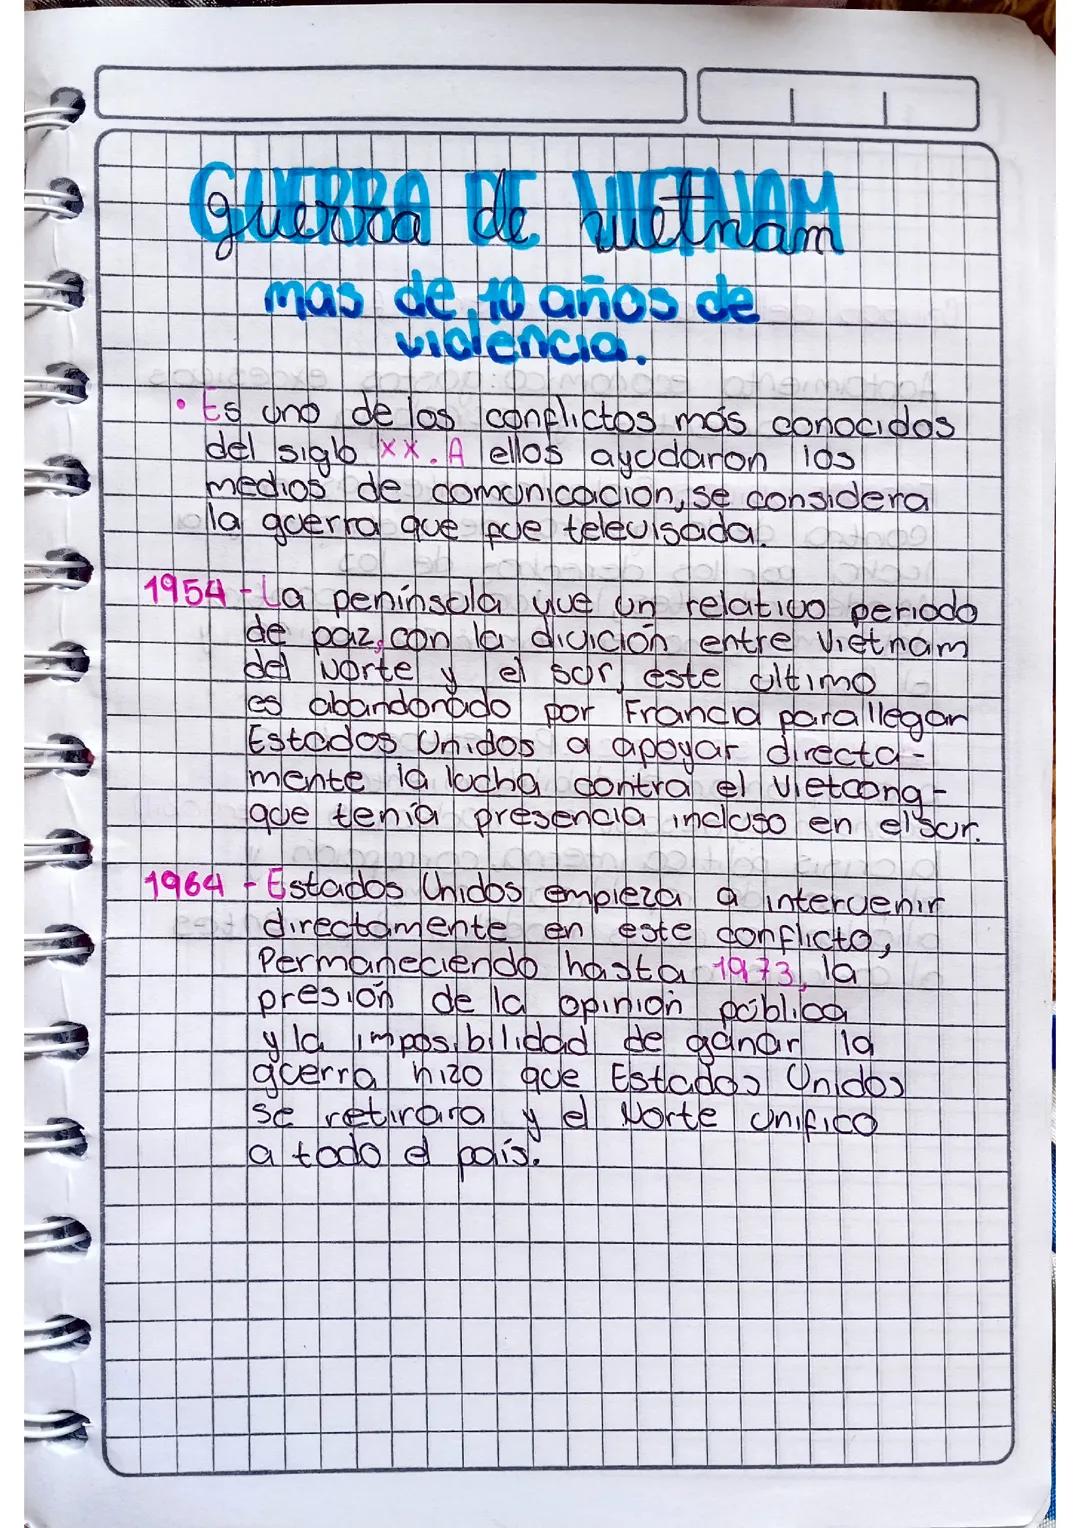 GUERRA DE VIETNAM
guerra de vietnam
mas de 10 años de
violencia.
• Es uno de los conflictos más conocidos
del siglo XX. A ellos ayudaron los
medios de comunicacion, se considera
la guerra que fue televisada.
1954 - La península vive un relativo periodo
de paz, con la divición entre Vietnam
del Norte y el sur, este último
es abandonado por Francia para llegar
Estados Unidos a apoyar directa-
mente la lucha contra el Vietcong-
que tenía presencia incluso en el sur.
1964 - Estados Unidos empieza a intervenir
directamente en este conflicto,
Permaneciendo hasta 1973, la
presión de la opinión pública
y la imposibilidad de ganar la
guerra hizo que Estados Unidos
se retirara y el Norte unifico
a todo el país.